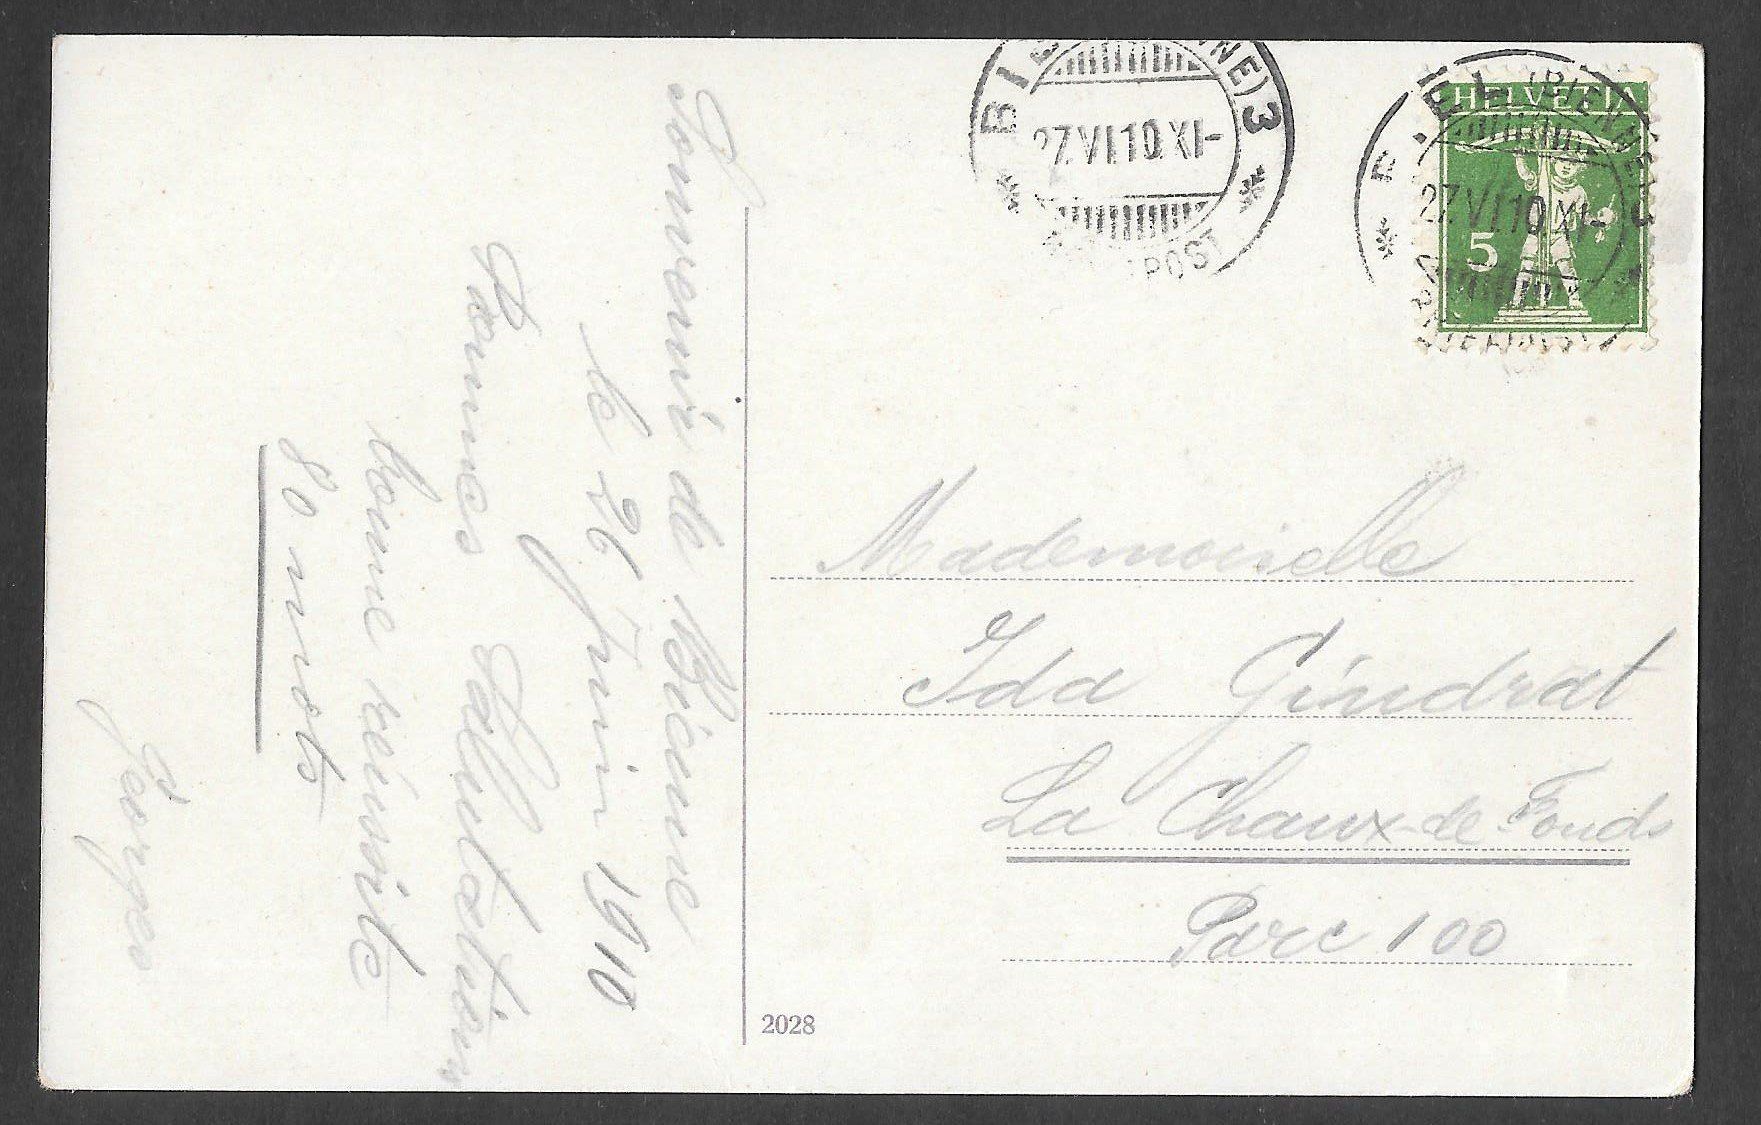 Souvenir de Bienne
le 26 Juin 1910
Bonnes Salutations
bonne réussite
80 mots
Georges
BIE NE) 3
27.VI.10.XI-
POST
HELVETIA
5
EL (BIENNE) 3
27.VI.10.XI-
Mademoiselle
Ida Gindrat
La Chaux-de-Fonds
Parc 100
2028